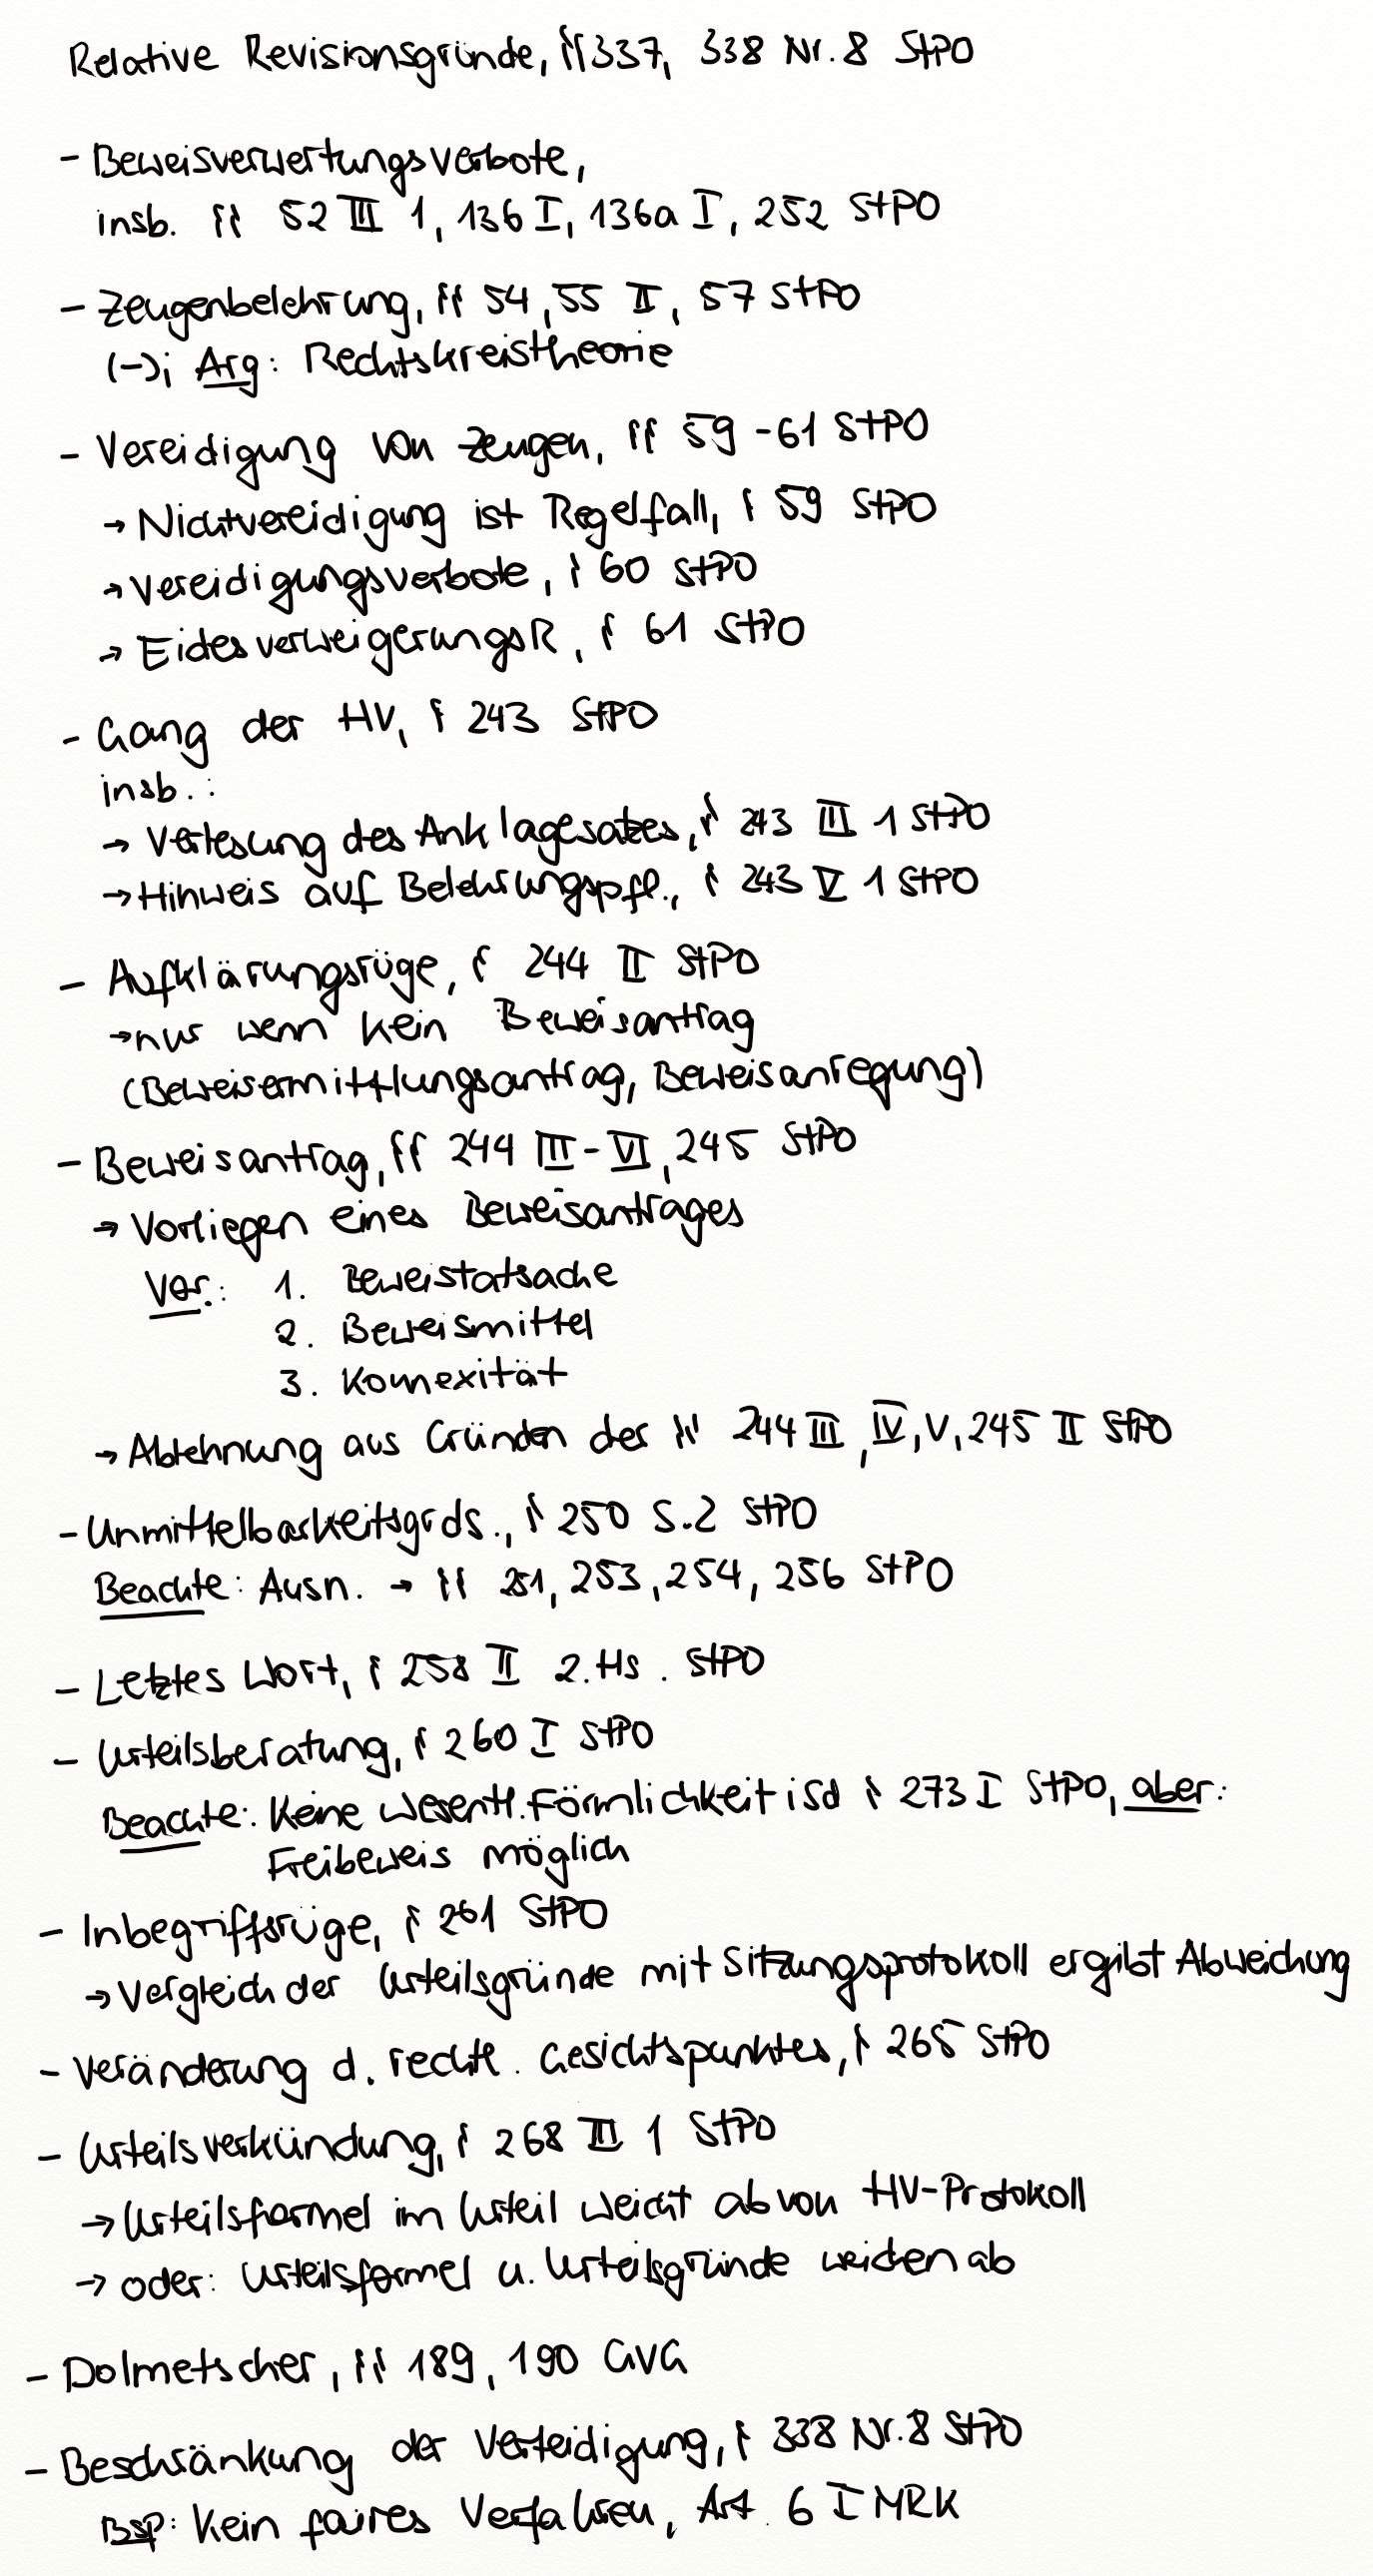 Relative Revisionsgründe, §§ 337, 338 Nr. 8 StPO
- Beweisverwertungsverbote,
insb. §§ 52 III 1, 136 I, 136a I, 252 StPO
- Zeugenbelehrung, §§ 54, 55 II, 57 StPO
(-); Arg: Rechtskreistheorie
- Vereidigung von Zeugen, §§ 59 - 61 StPO
→ Nichtvereidigung ist Regelfall, § 59 StPO
→ Vereidigungsverbote, § 60 StPO
→ EidesverweigerungsR, § 61 StPO
- Gang der HV, § 243 StPO
insb.:
→ Verlesung des Anklagesatzes, § 243 III 1 StPO
→ Hinweis auf Belehrungspfl., § 243 V 1 StPO
- Aufklärungsrüge, § 244 II StPO
→ nur wenn kein Beweisantrag
(Beweisermittlungsantrag, Beweisanregung)
- Beweisantrag, §§ 244 III - VI, 245 StPO
→ Vorliegen eines Beweisantrages
Vor.: 1. Beweistatsache
2. Beweismittel
3. Konnexität
→ Ablehnung aus Gründen des §§ 244 III, IV, V, 245 II StPO
- Unmittelbarkeitsgrds., § 250 S.2 StPO
Beachte: Ausn. → §§ 251, 253, 254, 256 StPO
- Letztes Wort, § 258 II 2. Hs. StPO
- Urteilsberatung, § 260 I StPO
Beachte: Keine wesentl. Förmlichkeit isd § 273 I StPO, aber:
Freibeweis möglich
- Inbegriffsrüge, § 261 StPO
→ Vergleich der Urteilsgründe mit Sitzungsprotokoll ergibt Abweichung
- Veränderung d. rechtl. Gesichtspunktes, § 265 StPO
- Urteilsverkündung, § 268 III 1 StPO
→ Urteilsformel im Urteil weicht ab von HV-Protokoll
→ oder: Urteilsformel u. Urteilsgründe weichen ab
- Dolmetscher, §§ 189, 190 GVG
- Beschränkung der Verteidigung, § 338 Nr. 8 StPO
Bsp: Kein faires Verfahren, Art. 6 I MRK